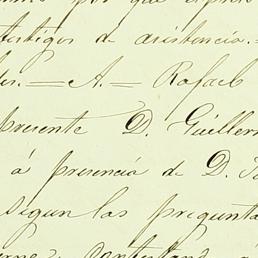 por que
testigos de asistencia.=
= A. = Rafael
presente D. Guillerm
á presencia de D.
segun las pregunta